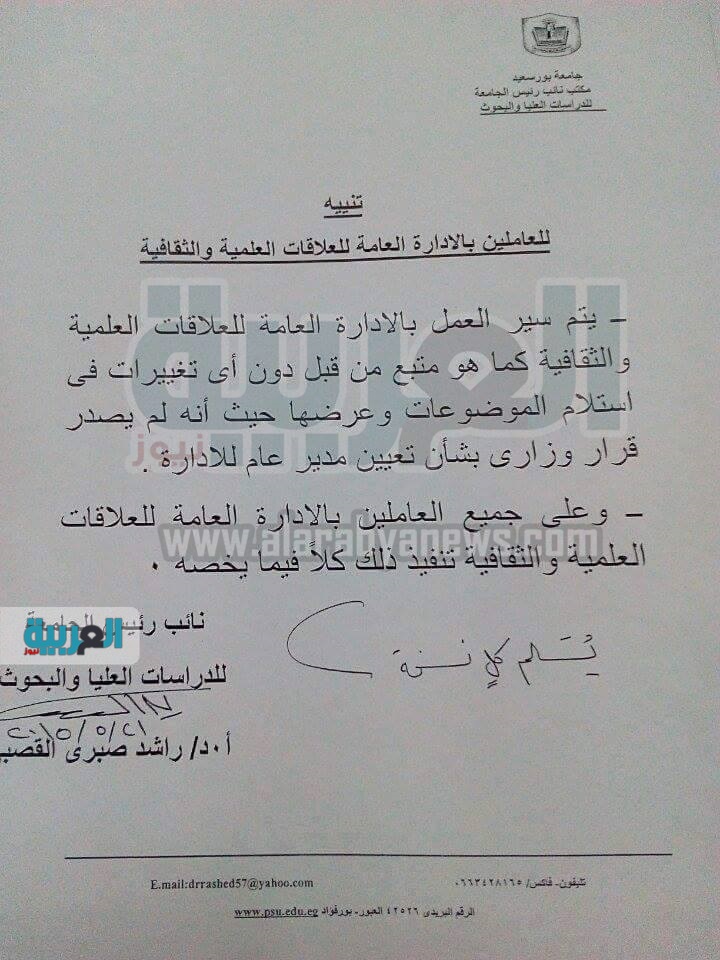 جامعة بورسعيد
مكتب نائب رئيس الجامعة
للدراسات العليا والبحوث
تنبيه
للعاملين بالادارة العامة للعلاقات العلمية والثقافية
– يتم سير العمل بالادارة العامة للعلاقات العلمية
والثقافية كما هو متبع من قبل دون أى تغييرات فى
استلام الموضوعات وعرضها حيث أنه لم يصدر
قرار وزارى بشأن تعيين مدير عام للادارة .
– وعلى جميع العاملين بالادارة العامة للعلاقات
العلمية والثقافية تنفيذ ذلك كلاً فيما يخصه .
العربية
نيوز
www.alarabyanews.com
نائب رئيس الجامعة
العربية
نيوز
للدراسات العليا والبحوث
يُسلم كلاً نسخة
٢٠١٥/٥/٢١
أ.د/ راشد صبرى القصبي
E.mail:drrashed57@yahoo.com
تليفون- فاكس/ ٠٦٦٣٤٢٨١٦٥
الرقم البريدى ٤٢٥٢٦ العبور- بورفؤاد www.psu.edu.eg